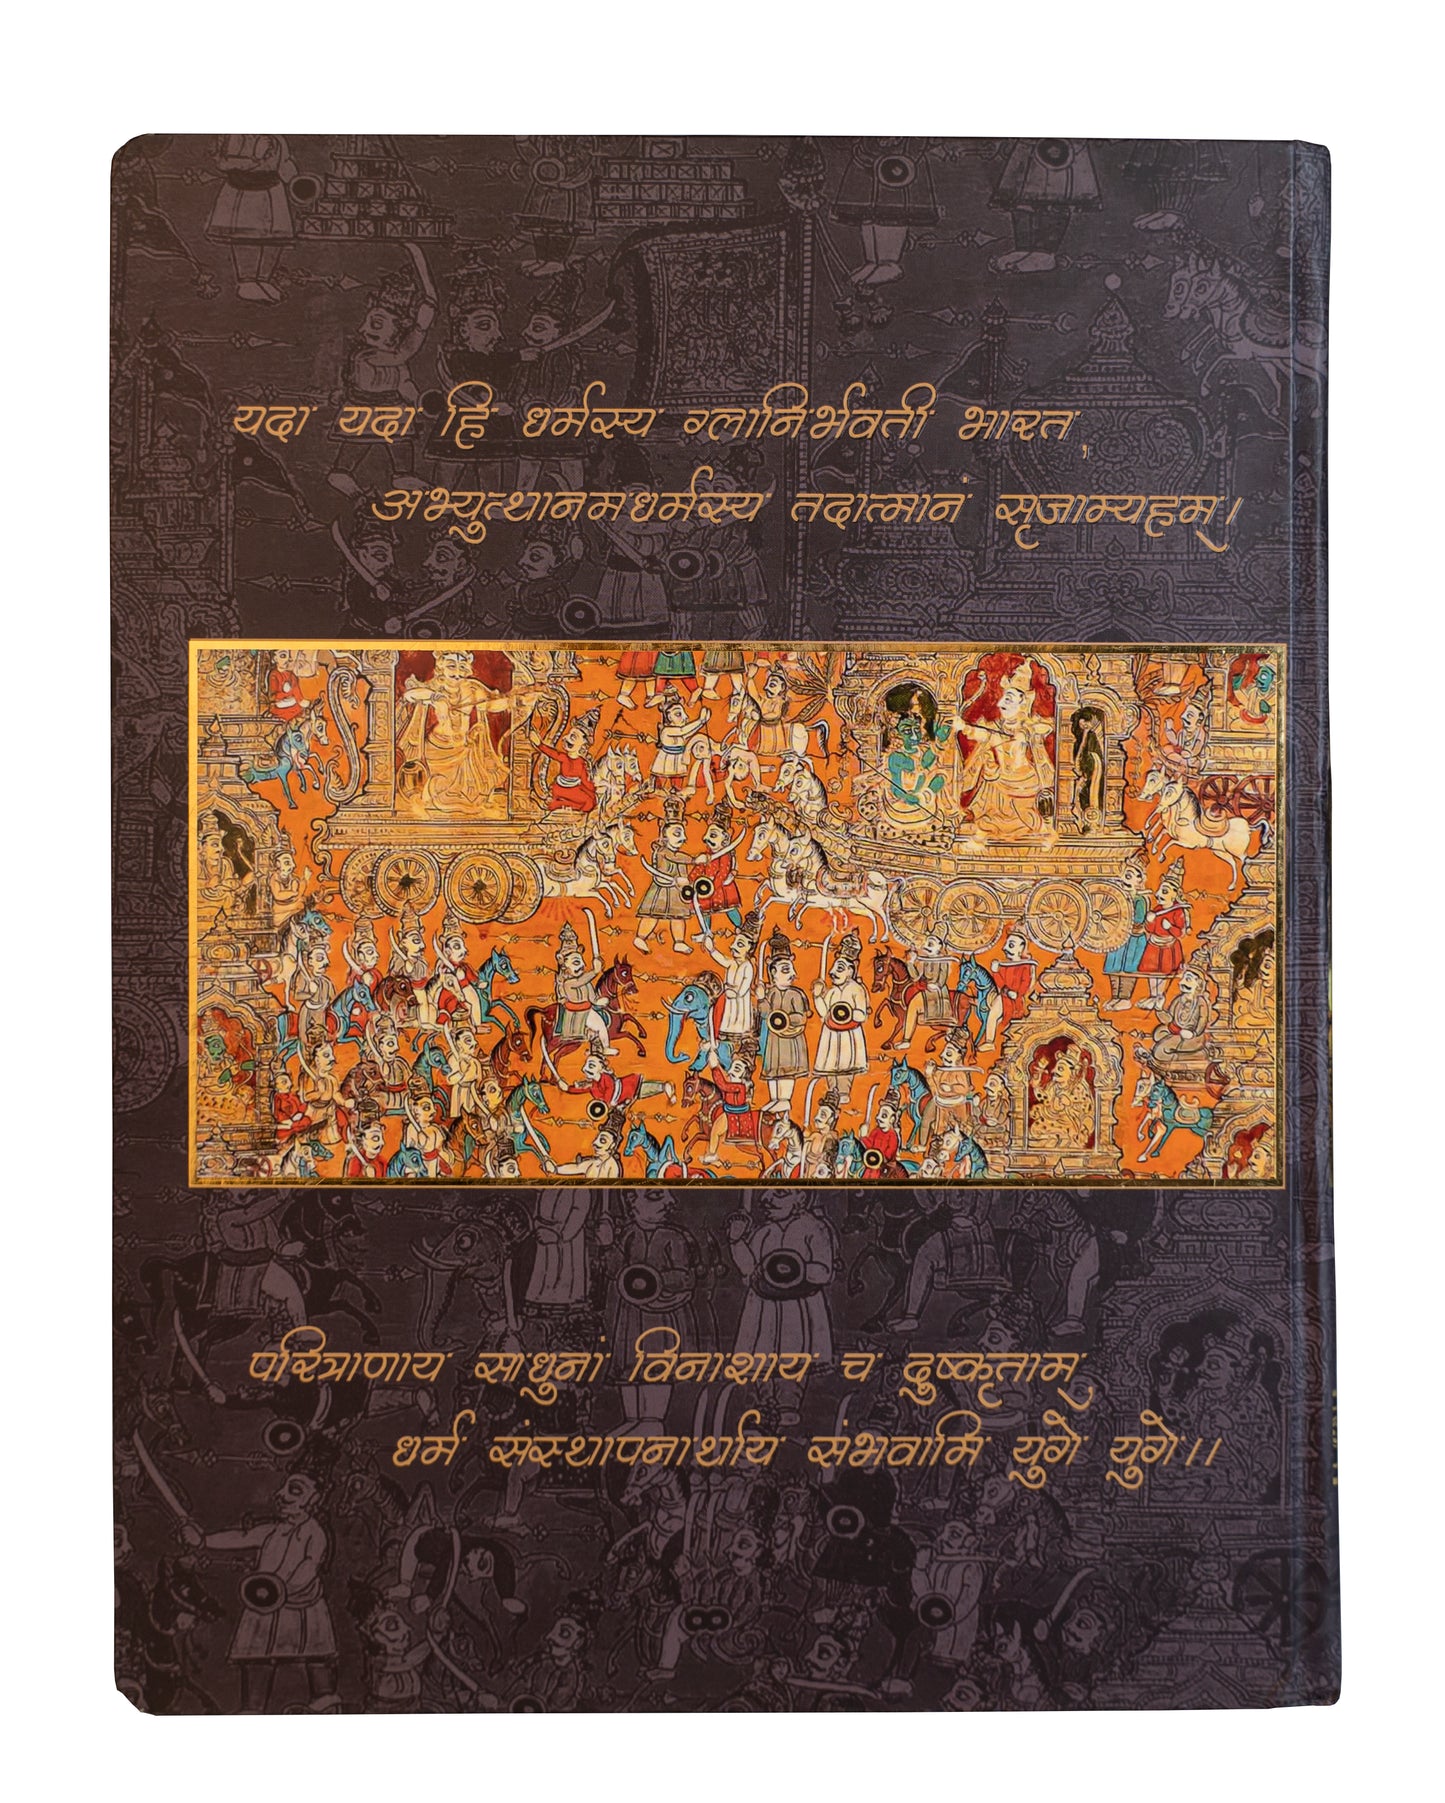 यदा यदा हि धर्मस्य ग्लानिर्भवती भारत,
अभ्युत्थानमधर्मस्य तदात्मानं सृजाम्यहम्।
परित्राणाय साधुनां विनाशाय च दुष्कृताम्
धर्म संस्थापनार्थाय संभवामि युगे युगे।।